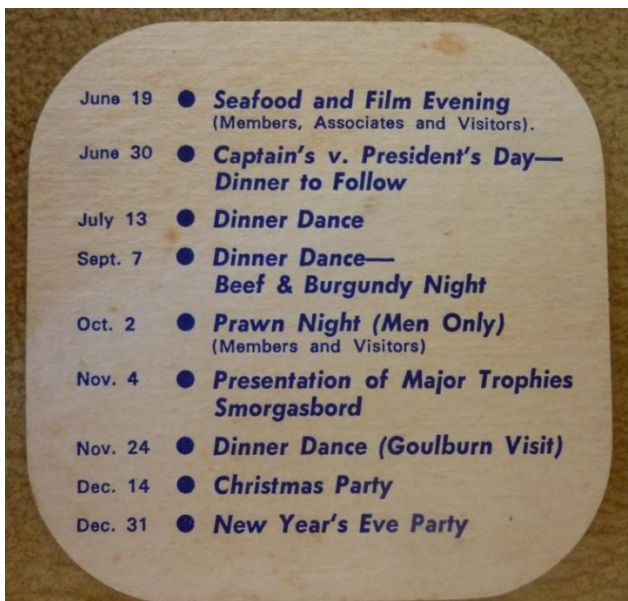 June 19 ● Seafood and Film Evening
(Members, Associates and Visitors).
June 30 ● Captain's v. President's Day—
Dinner to Follow
July 13 ● Dinner Dance
Sept. 7 ● Dinner Dance—
Beef & Burgundy Night
Oct. 2 ● Prawn Night (Men Only)
(Members and Visitors)
Nov. 4 ● Presentation of Major Trophies
Smorgasbord
Nov. 24 ● Dinner Dance (Goulburn Visit)
Dec. 14 ● Christmas Party
Dec. 31 ● New Year's Eve Party